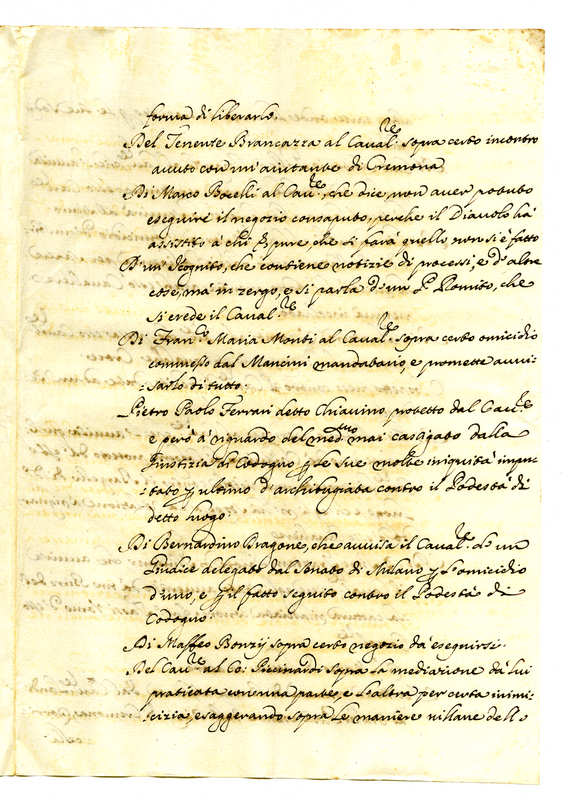 forma di liberarlo.
Del Tenente Brancazza al Caval.re sopra certo incontro
avuto con un' aiutante di Cremona
Di Marco Bocelli al Cav.re, che dice, non aver potuto
eseguire il negozio consaputo, perche il Diavolo hà
assistito à chi &c. pure, che si farà quello, non si è fatto
D'un' Incognito, che contiene notizie di processi, e d'altre
cose, mà in zergo, e si parla d'un P. Romito, che
si crede il Caval.re
Di Fran.co Maria Monti al Caval.re sopra certo omicidio
commesso dal Mancini mandatario, e promette avvi-
:sarlo di tutto.
Pietro Paolo Ferrari detto Chiavino, protetto dal Cav.re
e però à riguardo del med.mo mai castigato dalla
Giustizia di Codogno p le sue molte iniquità impu-
:tato p ultimo d'archibugiata contro il Podestà di
detto luogo.
Di Bernardino Bragone, che avvisa il Caval.re d'un
Giudice delegato dal Senato di Milano p l'omicidio
d'uno, e p il fatto seguito contro il Podestà di
Codogno.
Di Maffeo Bonzij sopra certo negozio dà eseguirsi.
Del Cav.re al Co: Piccinardi sopra la mediazione dà lui
praticata con una parte, e l'altra per certa inimi-
:cizia, esaggerando sopra le maniere villane dello